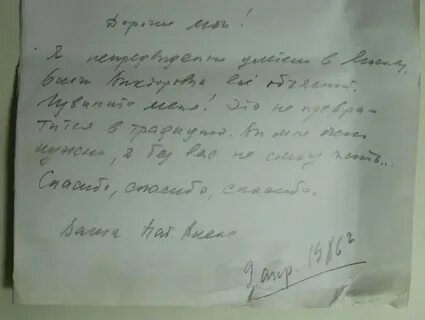 Дорогие мои!
Я непредвиденно улетаю в Москву,
Викторовна всё объяснит.
Извините меня! Это не превра-
тится в традицию. Вы мне очень
нужны, я без вас не смогу жить...
Спасибо, спасибо, спасибо.
Ваша
9 апр. 1986 г